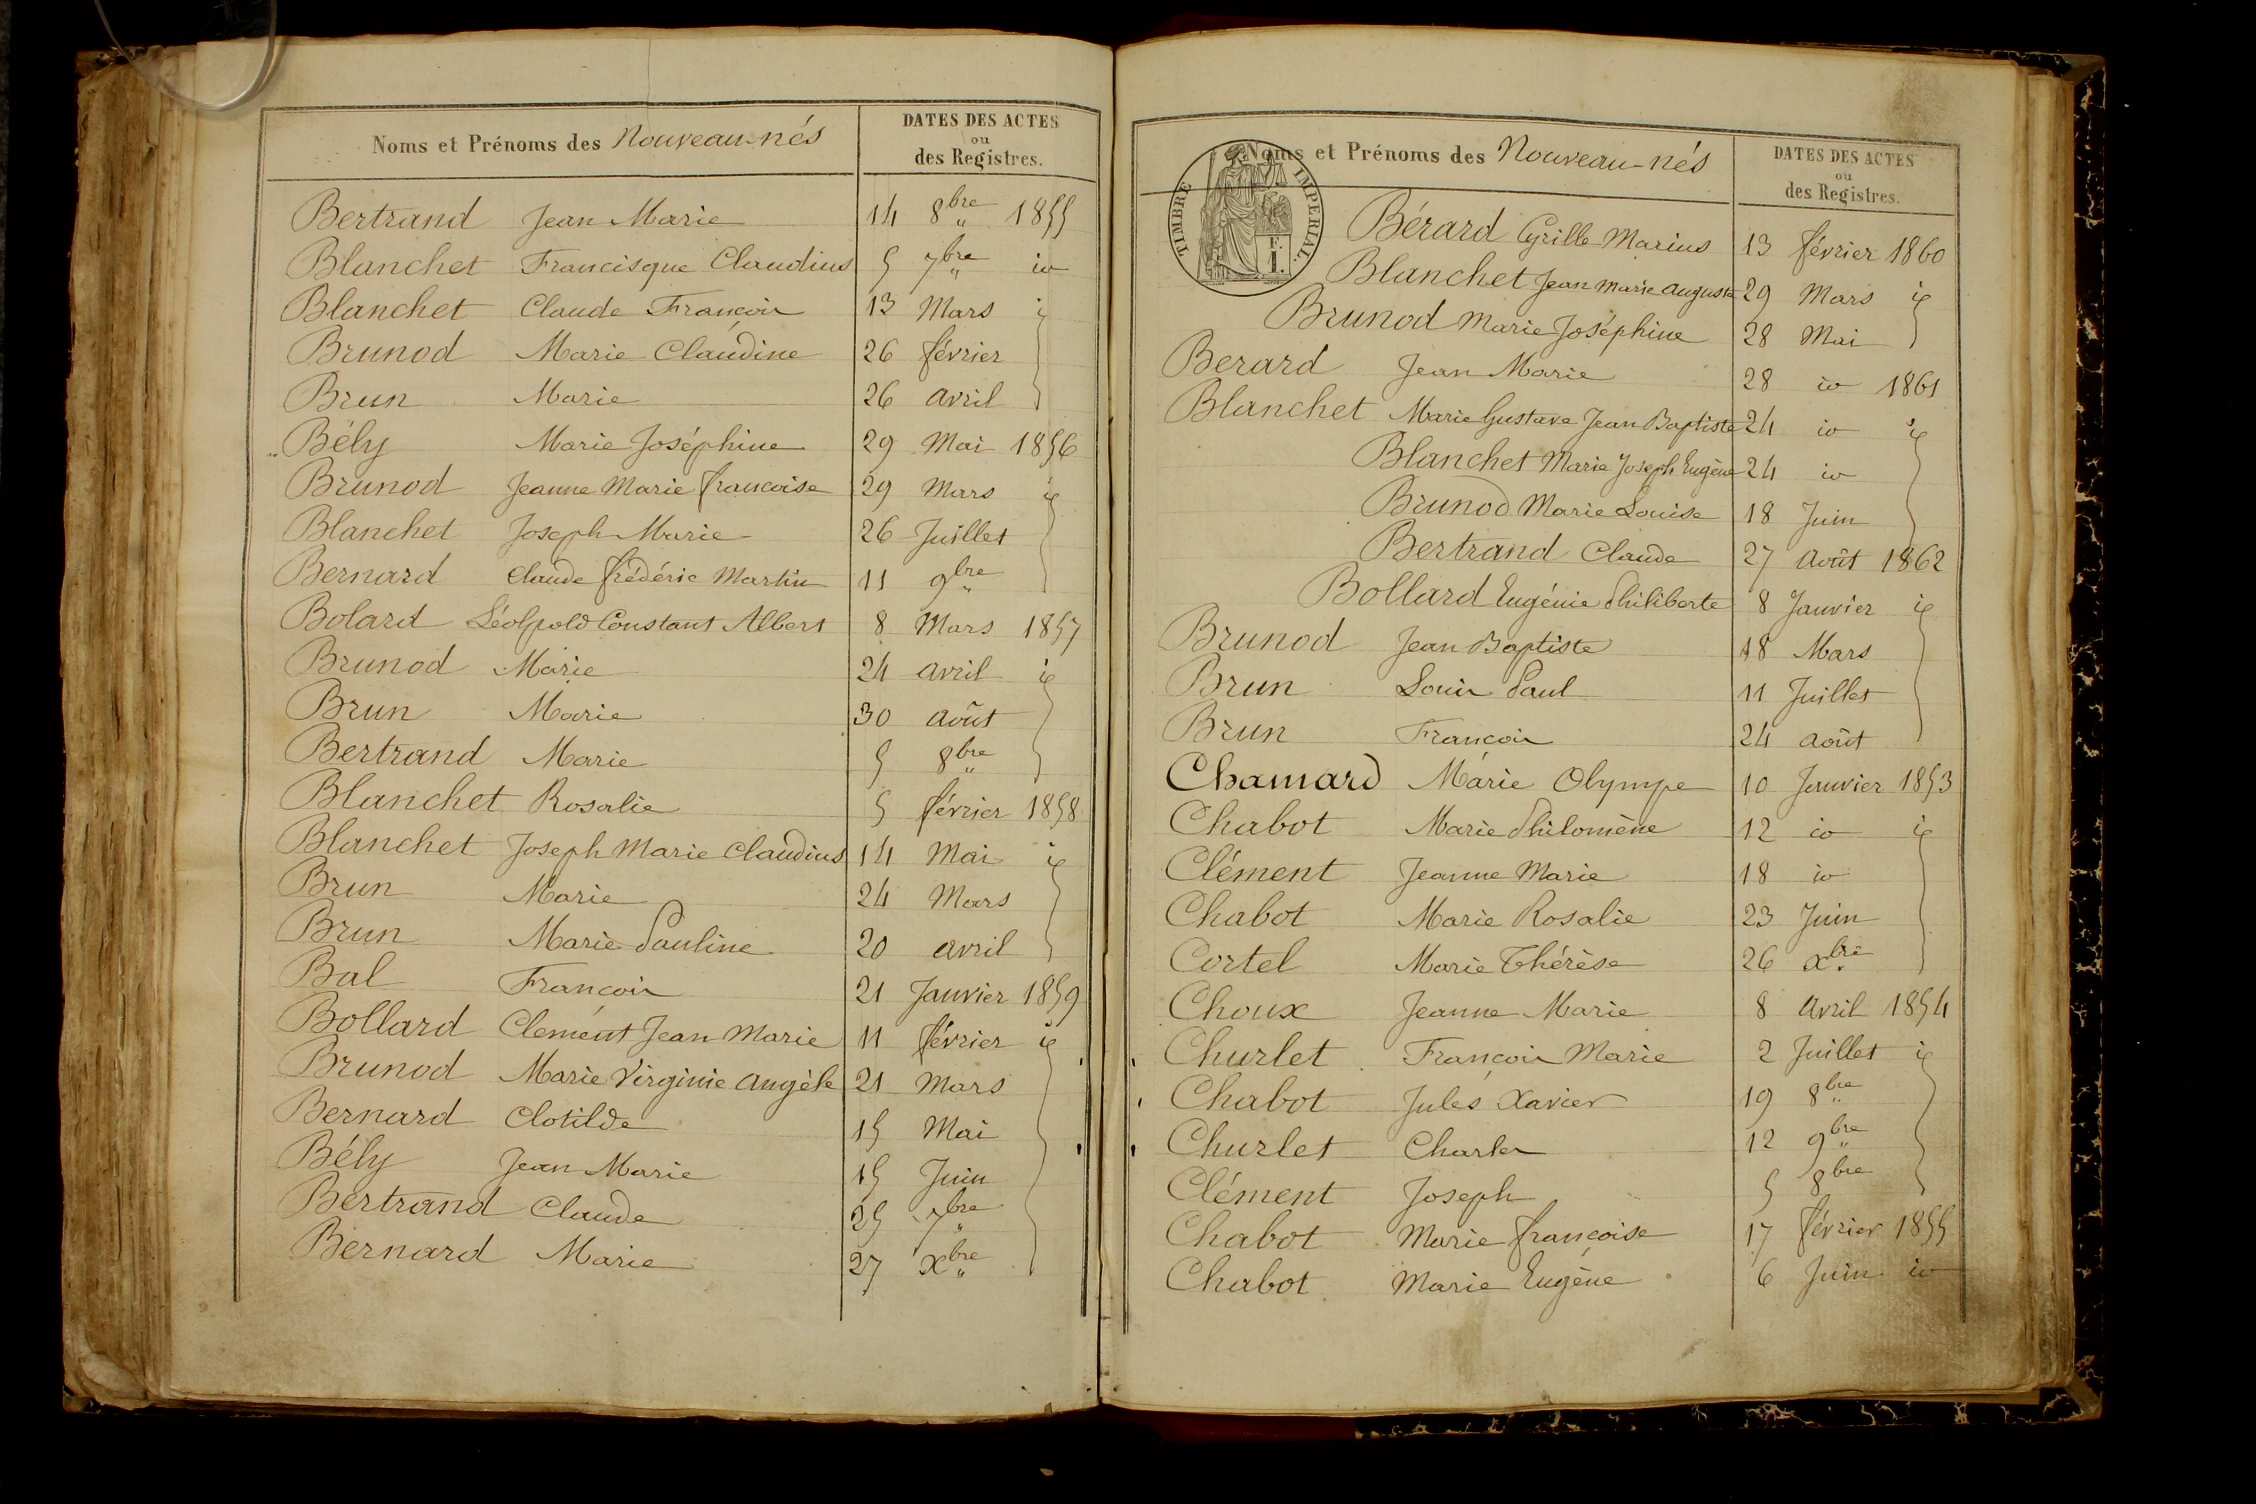 Noms et Prénoms des Nouveau-nés
DATES DES ACTES
ou
des Registres.
Bertrand Jean Marie 14 8bre 1855
Blanchet Francisque Claudius 5 7bre io
Blanchet Claude François 13 Mars
Brunod Marie Claudine 26 février
Brun Marie 26 avril
Bély Marie Joséphine 29 Mai 1856
Brunod Jeanne Marie françoise 29 Mars
Blanchet Joseph Marie 26 Juillet
Bernard Claude frédéric Martin 11 9bre
Bolard Léolpold Constant Albert 8 Mars 1857
Brunod Marie 24 avril
Brun Marie 30 août
Bertrand Marie 5 8bre
Blanchet Rosalie 5 février 1858
Blanchet Joseph Marie Claudius 14 Mai
Brun Marie 24 Mars
Brun Marie Pauline 20 avril
Bal François 21 Janvier 1859
Bollard Clement Jean Marie 11 février
Brunod Marie Virginie Angèle 21 Mars
Bernard Clotilde 15 Mai
Bély Jean Marie 15 Juin
Bertrand Claude 25 7bre
Bernard Marie 27 xbre
TIMBRE IMPERIAL
Noms et Prénoms des Nouveau-nés
DATES DES ACTES
ou
des Registres.
Bérard Cyrille Marius 13 février 1860
Blanchet Jean Marie Auguste 29 Mars
Brunod Marie Joséphine 28 Mai
Berard Jean Marie 28 io 1861
Blanchet Marie Gustave Jean Baptiste 24 io
Blanchet Marie Joseph Eugène 24 io
Brunod Marie Louise 18 Juin
Bertrand Claude 27 Août 1862
Bollard Eugénie Philiberte 8 Janvier
Brunod Jean Baptiste 18 Mars
Brun Louis Paul 11 Juillet
Brun François 24 août
Chamard Marie Olympe 10 Janvier 1853
Chabot Marie Philomène 12 io
Clément Jeanne Marie 18 io
Chabot Marie Rosalie 23 Juin
Cortel Marie Thérèse 26 xbre
Choux Jeanne Marie 8 Avril 1854
Churlet François Marie 2 Juillet
Chabot Jules Xavier 19 8bre
Churlet Charles 12 9bre
Clément Joseph 5 8bre
Chabot Marie françoise 17 février 1855
Chabot Marie Eugène 6 Juin io